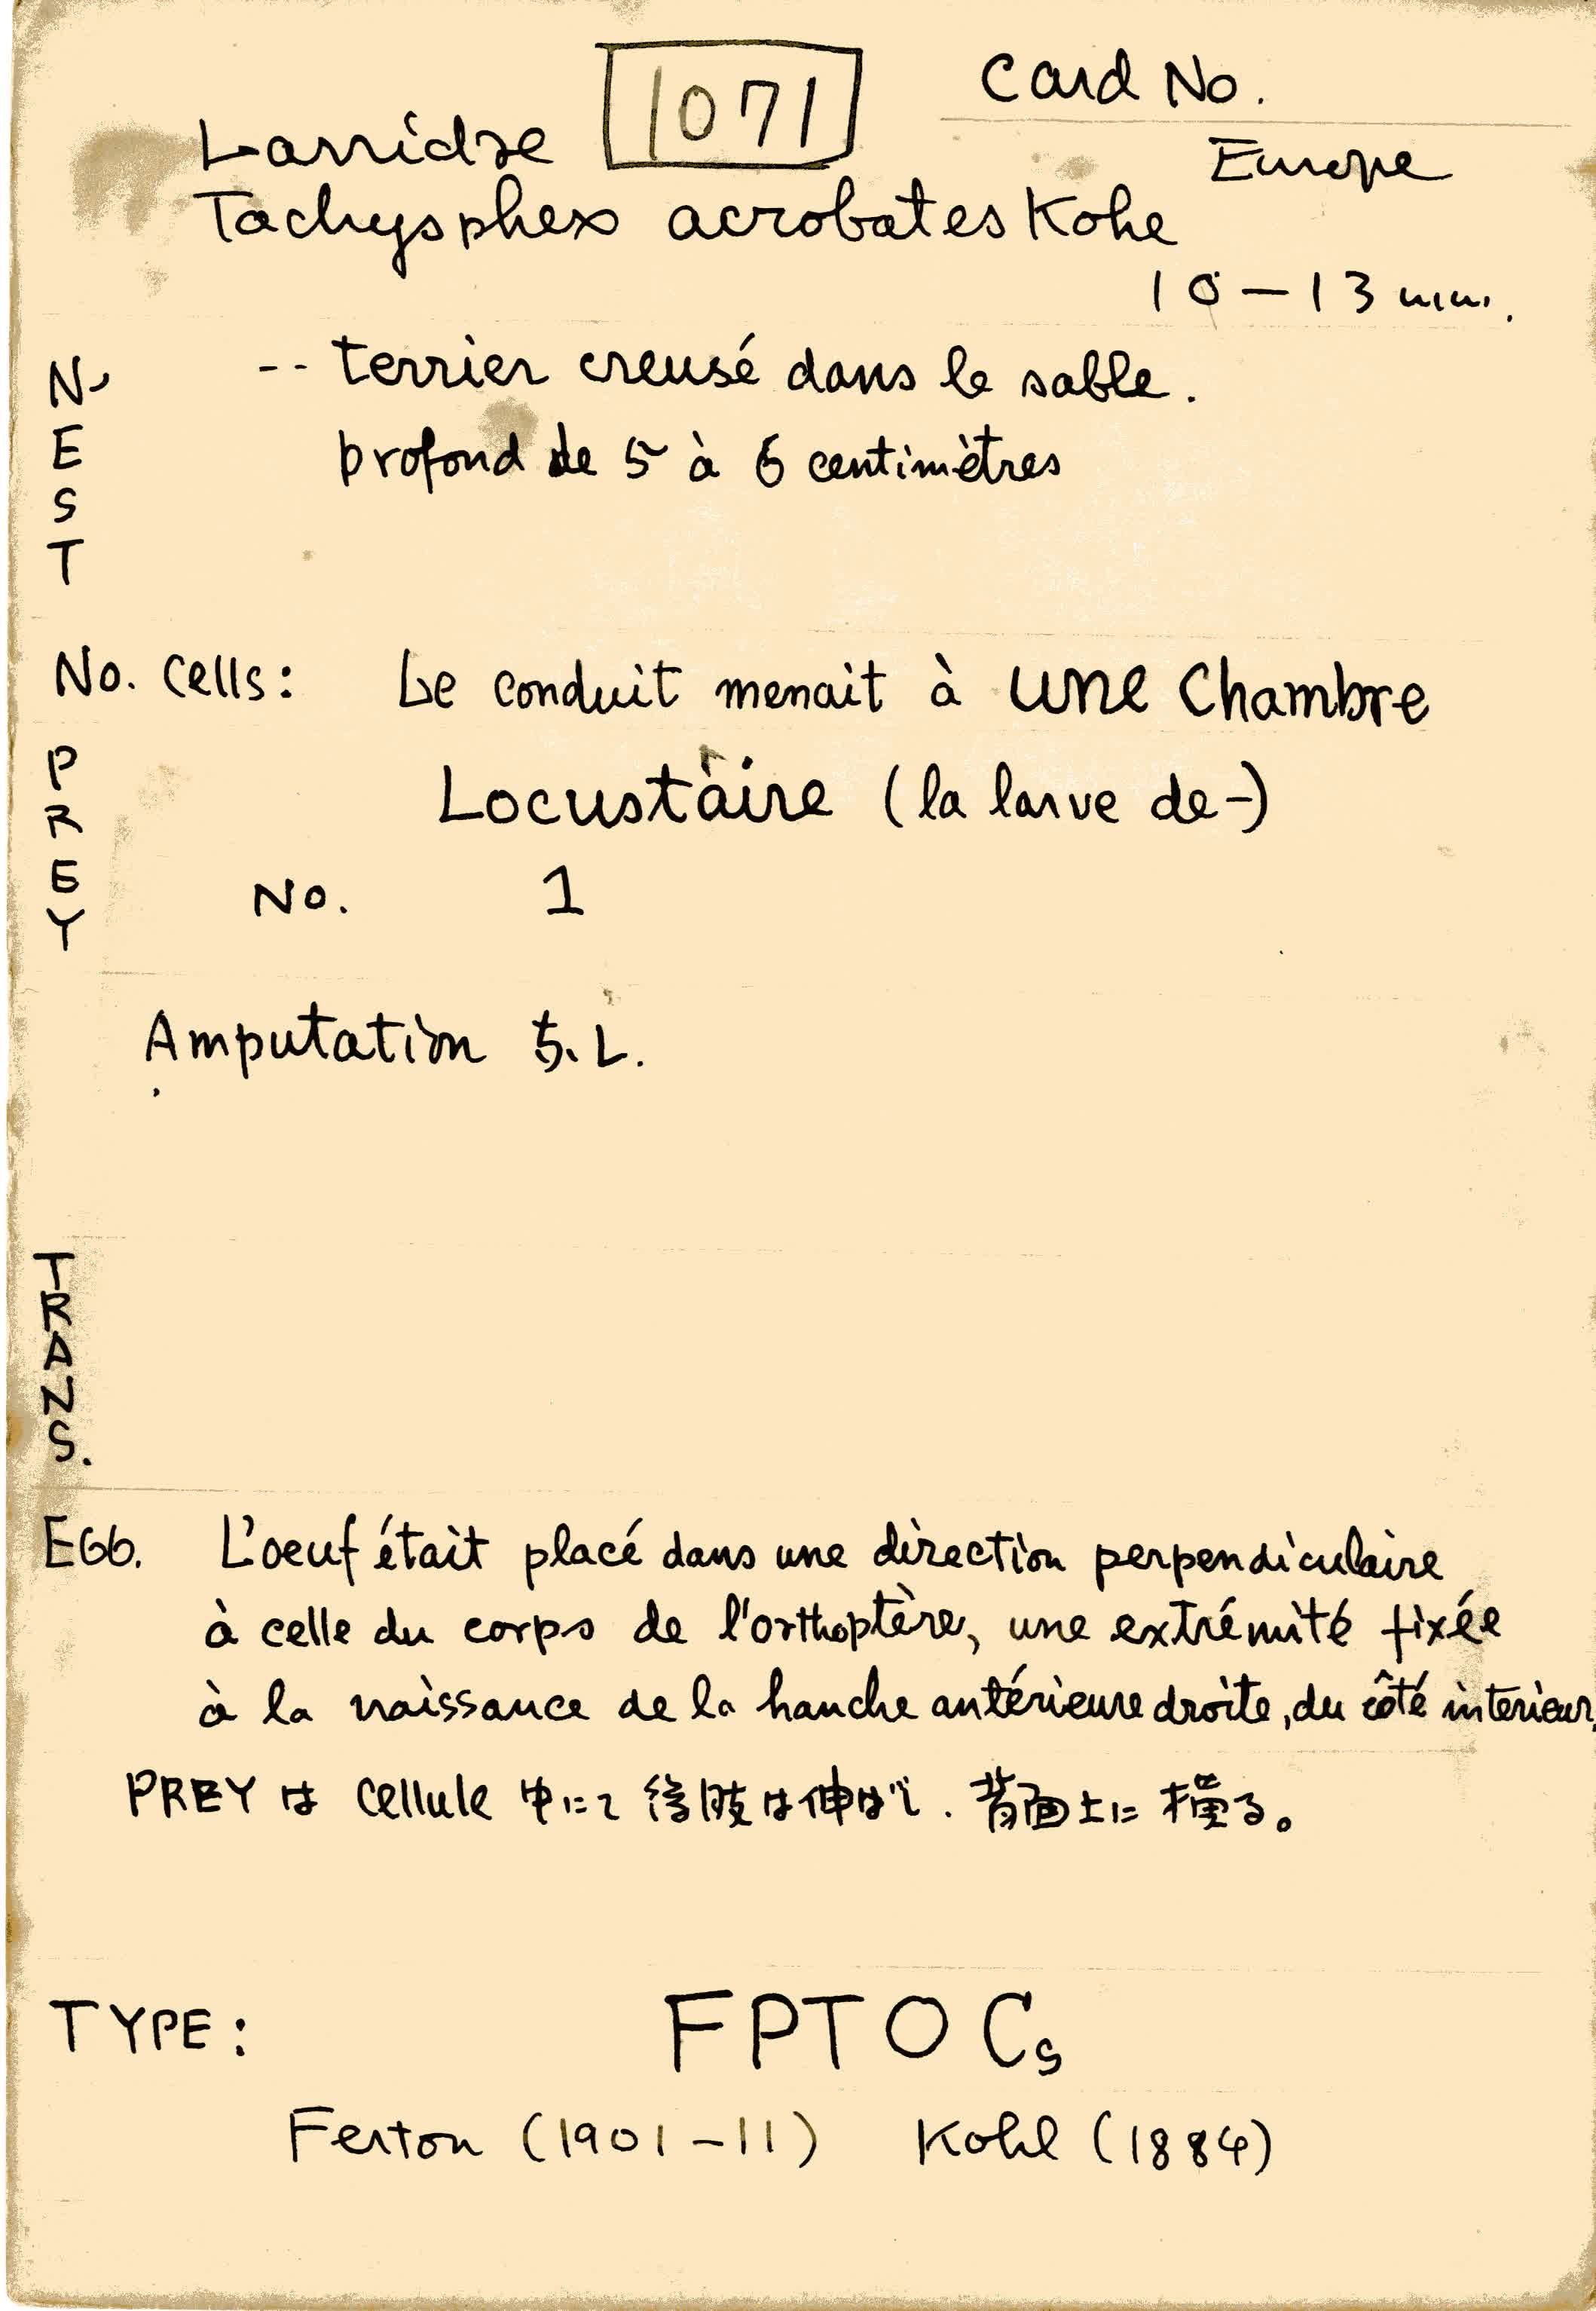 Card No.
1071
Larridae
Europe
Tachysphex acrobates Kohe
10-13 mm.
NEST
-- terrier creusé dans le sable.
profond de 5 à 6 centimètres
No. Cells: Le conduit menait à une Chambre
PREY
Locustaire (la larve de-)
No. 1
Amputation ち. L.
TRANS.
EGG. L'oeuf était placé dans une direction perpendiculaire
à celle du corps de l'orthoptère, une extrémité fixée
à la naissance de la hanche antérieure droite, du côté interieur,
PREY は cellule 中にて 後肢は伸ばし. 背面上に横る。
TYPE: FPTOCs
Ferton (1901-11) Kohl (1884)